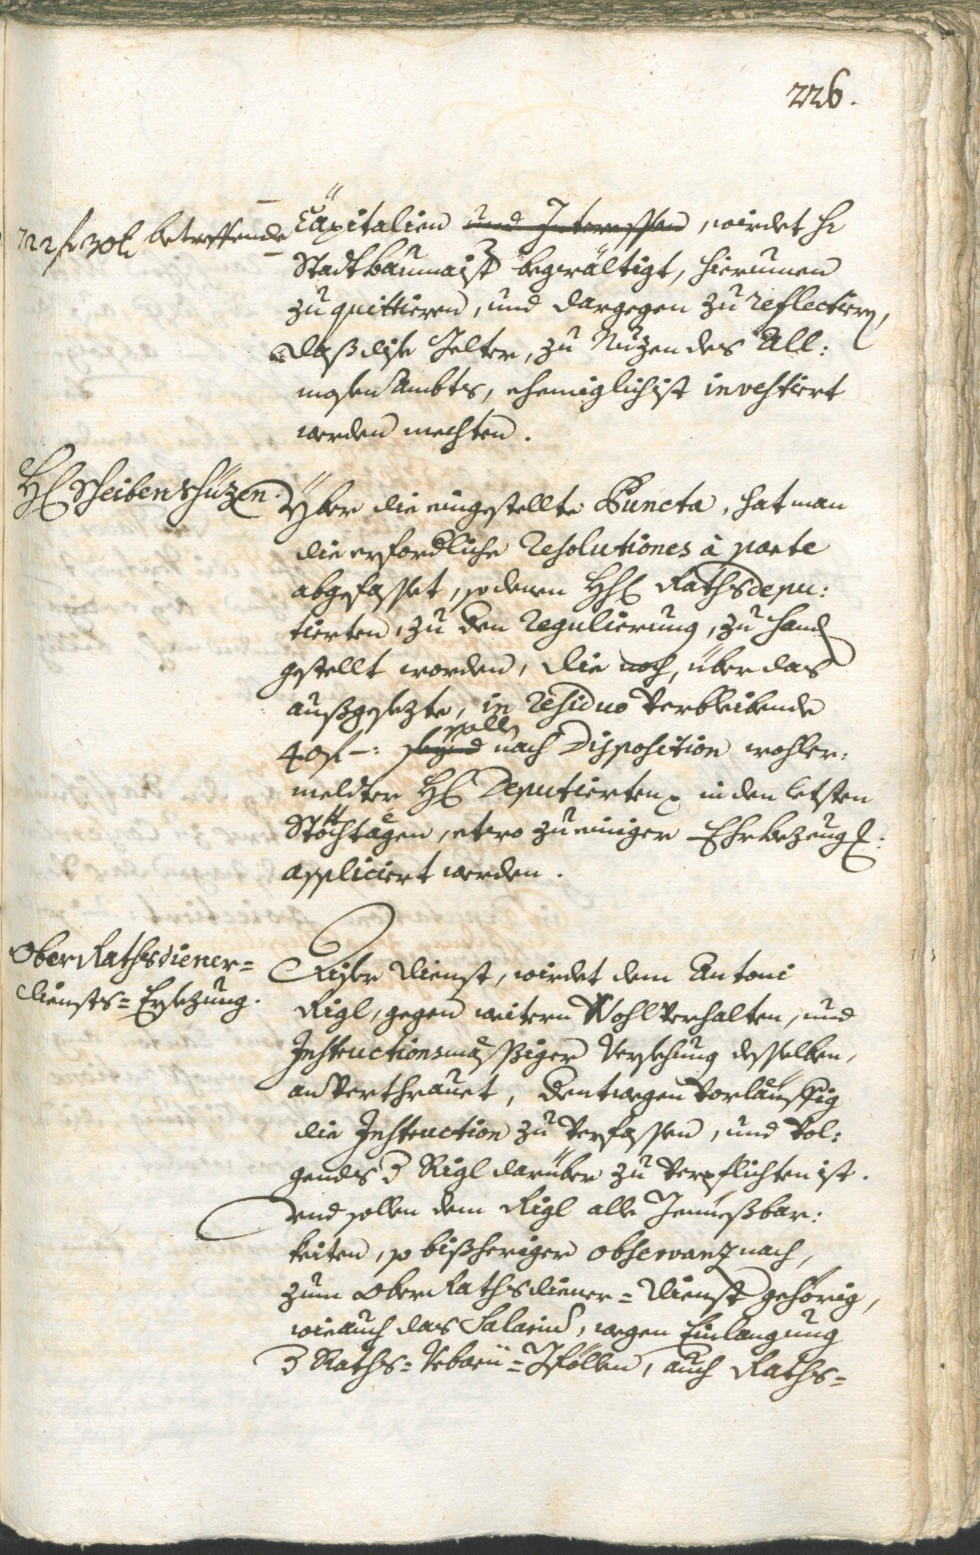 226.
722 f 30 kr betreffende
Capitalien und Interessen, wirdet H:
Stadtbaumaist: begwältigt, hierumen
zu quittieren, und dargegen zu reflectiern,
daß dise Gelter, zu Nuzen des All:
mosen Ambts, ehemiglichist investiert
werden mechten.
HH Scheibenschüzen.
Yber die eingestellte Puncta, hat man
die erfordliche Resolutiones à parte
abgefasset, so denen HH Raths depu:
tierten, zu den Regulierung, zu hand
gestellt worden, die noch, über das
außgesezte, in residuo verbleibende
40 f –: sollen
seynd nach Disposition wohler:
meldter HH Deputierten in den letsten
Stöchtägen, etwo zu einiger Ehrbezeug:
appliciert werden.
Ober Rathsdiener=
diensts=Ersezung.
Diser Dienst, wirdet dem Antoni
Rigl, gegen weitern Wohlverhalten, und
Instructionsmässiger Versehung desselben,
anverthrauet, dentwegen vorläuffig
die Instruction zu verfassen, und vol:
gends Rigl darüber zu verpflichten ist.
und sollen dem Rigl alle Genüeßbar:
keiten, so bißheriger observanz nach,
zum Ober Rathsdiener=Dienst gehörig,
wie auch das Salarium, wegen Einlangung
Raths= =Gföllen, auch Raths=